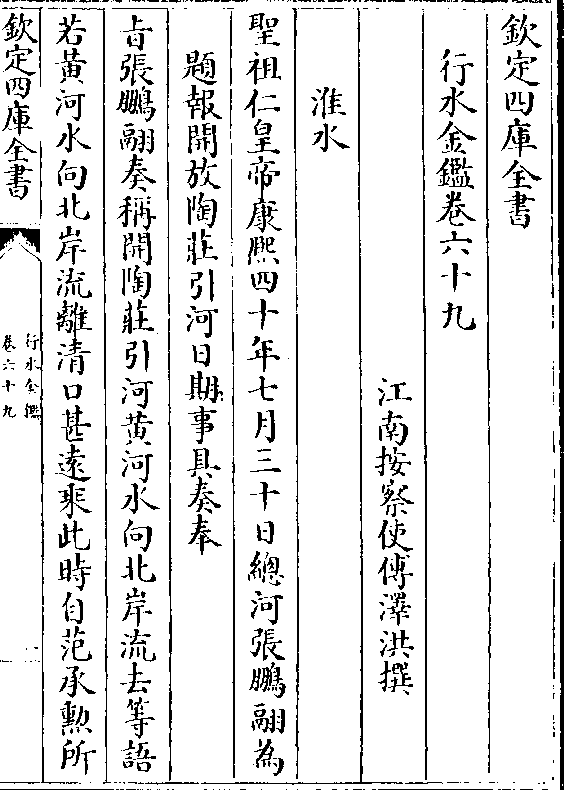 欽定四庫全書
行水金鑑卷六十九
江南按察使傅澤洪撰
淮水
聖祖仁皇帝康熙四十年七月三十日總河張鵬翮為
題報開放陶莊引河日期事具奏奉
㫖張鵬翮奏稱開陶莊引河黃河水向北岸流去等語
若黃河水向北岸流離清口甚遠乘此時自范承勲所
欽定四庫全書
行水金鑑
卷六十九
一